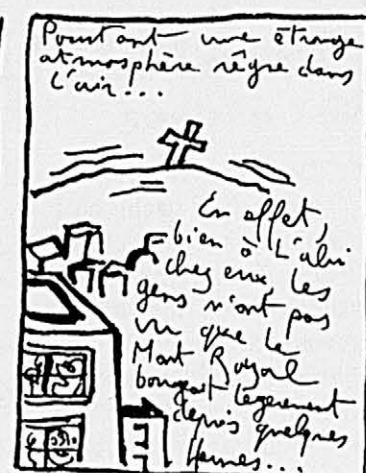 Pourtant une étrange
atmosphère règne dans
l'air...
En effet,
bien à l'abri
chez eux, les
gens n'ont pas
vu que le
Mont Royal
bougeait légèrement
depuis quelques
heures...